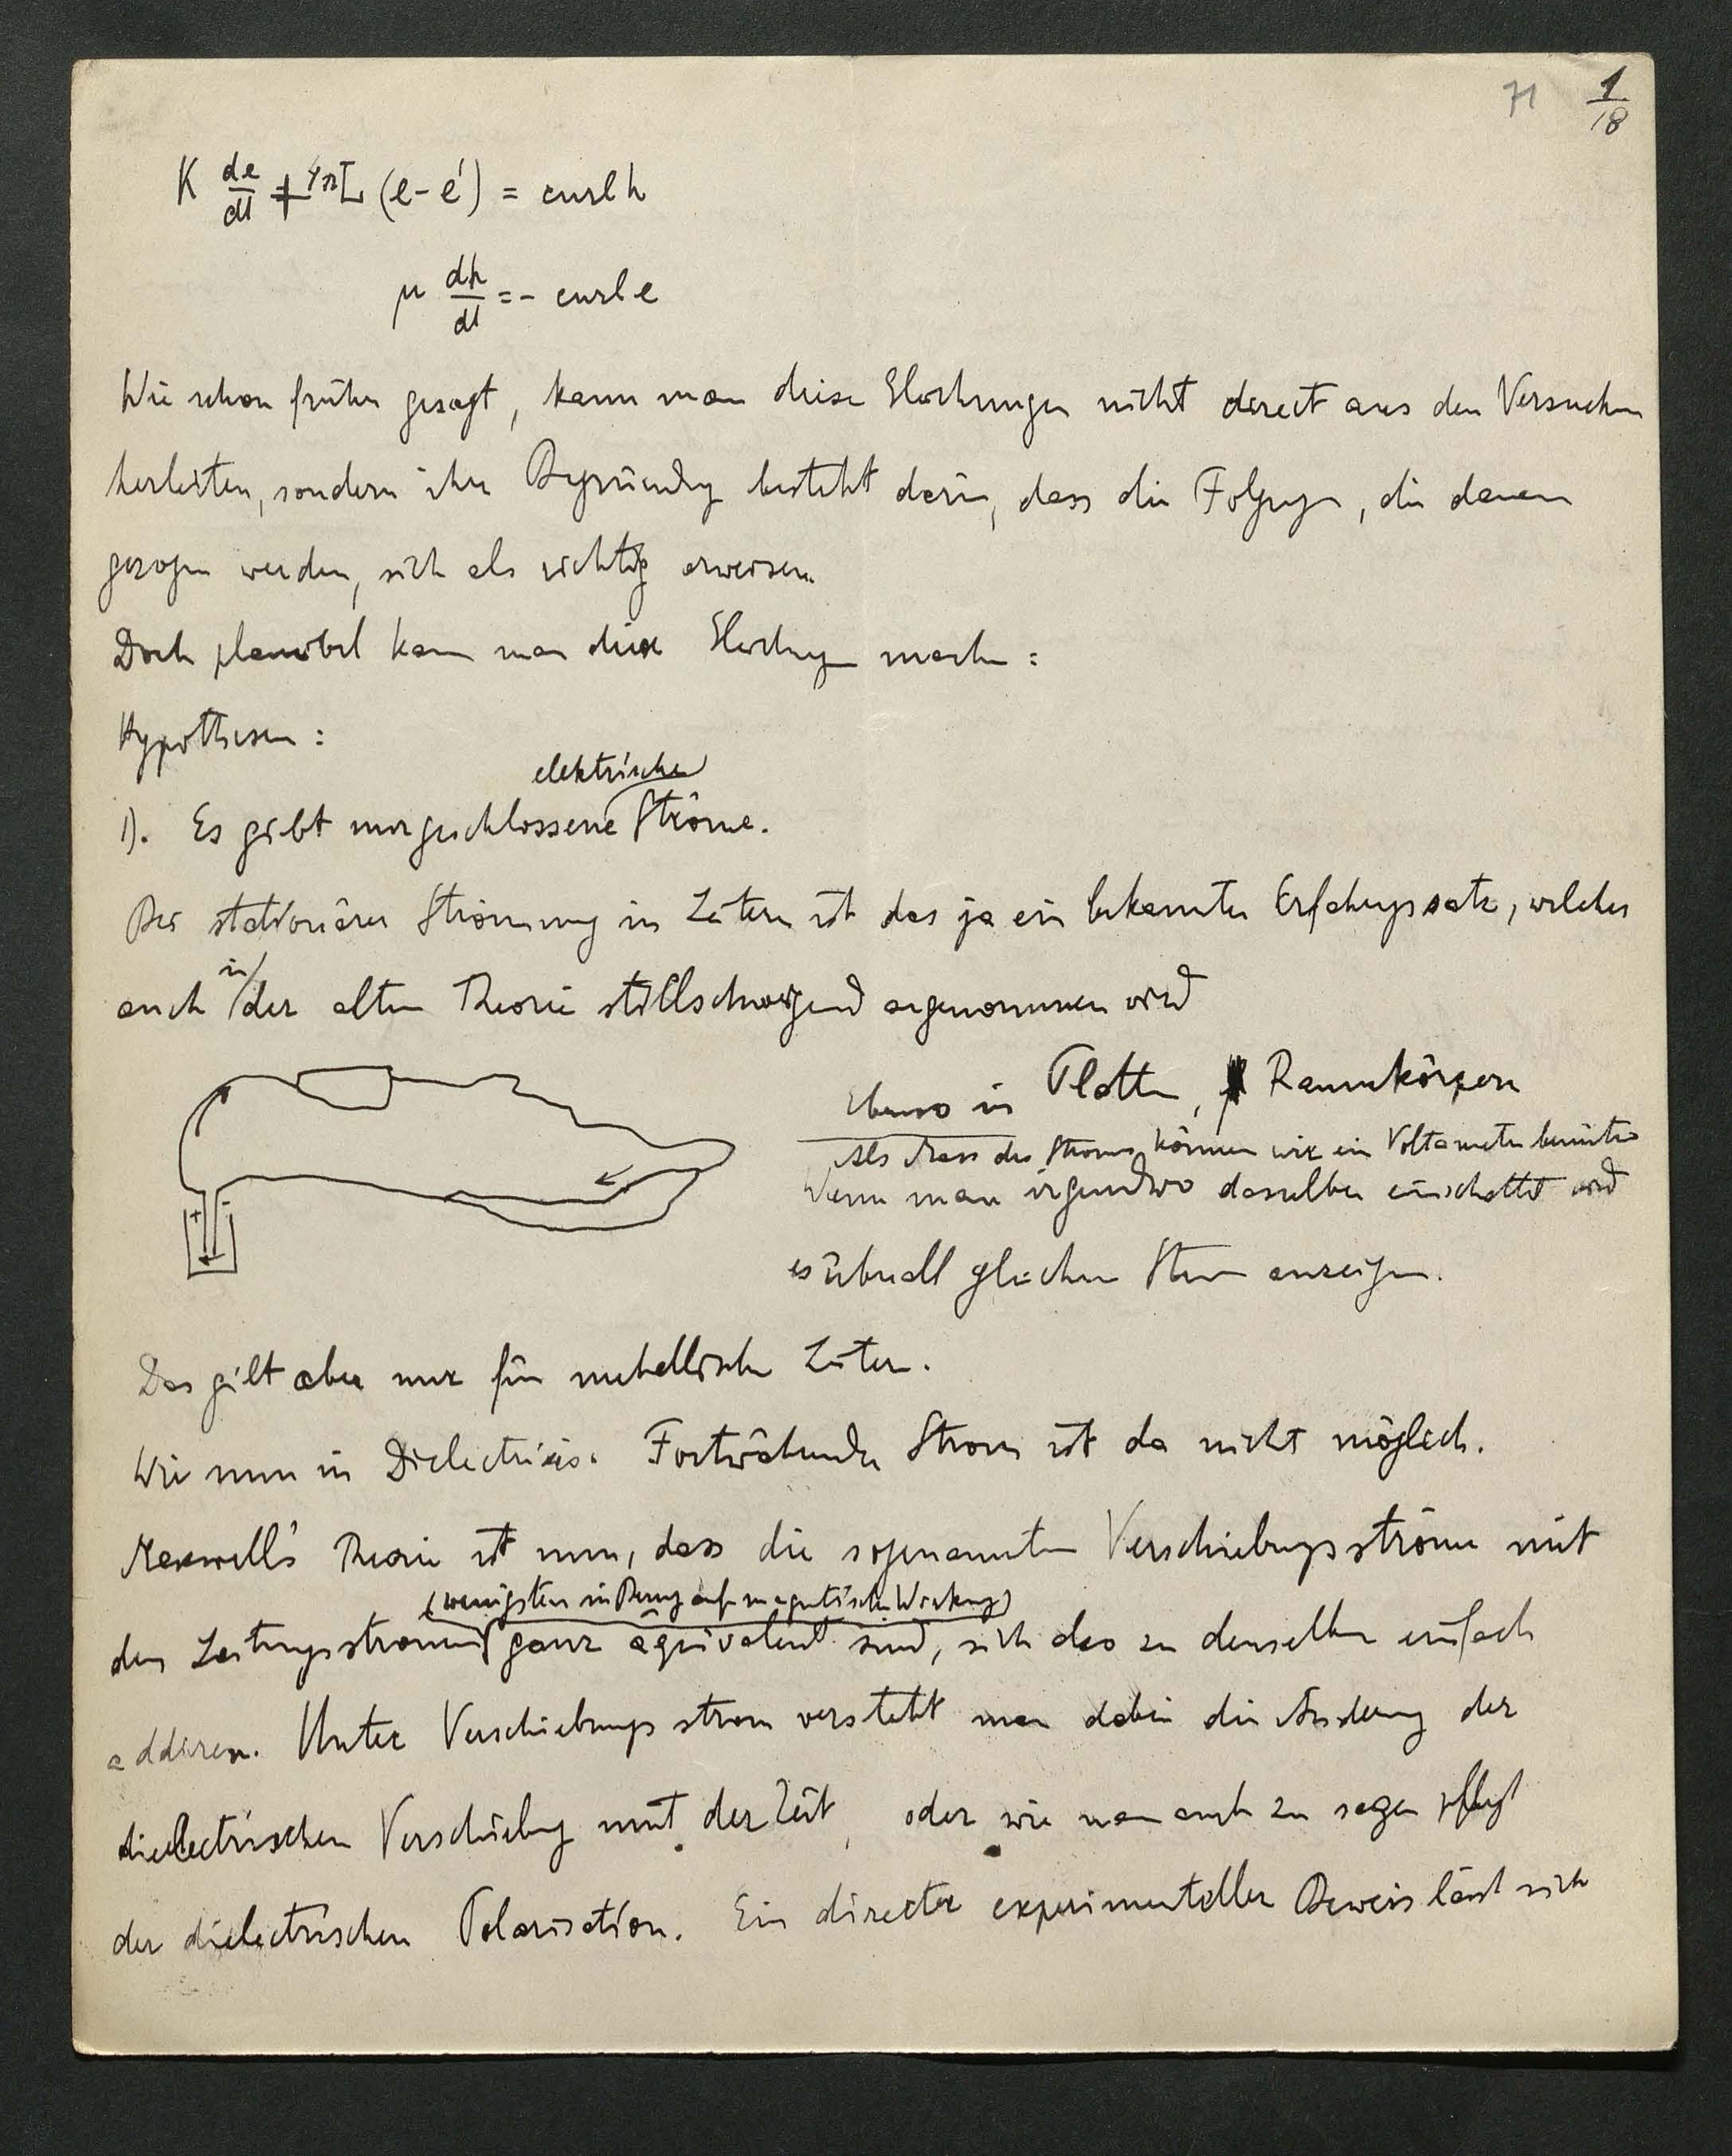 71 1/18
K de/dt + 4π L (e - e') = curl h
μ dh/dt = - curl e
Wie schon früher gesagt, kann man diese Gleichungen nicht direct aus den Versuchen
herleiten, sondern ihre Begründung besteht darin, dass die Folgerungen, die daraus
gezogen werden, sich als richtig erweisen
Doch plausibel kann man diese Gleichungen machen :
Hypothesen :
elektrische
1). Es gibt nur geschlossene Ströme.
Bei stationärer Strömung in Leitern ist das ja ein bekannter Erfahrungssatz, welcher
in
auch der alten Theorie stillschweigend angenommen wird
Ebenso in Platten, Raumkörpern
Als Mass des Stroms können wir ein Voltameter benützen
Wenn man irgendwo dasselbe einschaltet wird
es überall gleichen Strom anzeigen.
+ -
Das gilt aber nur für metallische Leiter.
Wie nun in Dielectricis. Fortwährender Strom ist da nicht möglich.
Maxwell's Theorie ist nun, dass die sogenannten Verschiebungsströme mit
(wenigstens in Bezug auf magnetische Wirkung)
den Leitungsströmen ganz äquivalent sind, sich also zu denselben einfach
addiren. Unter Verschiebungsstrom versteht man dabei die Änderung der
dielectrischen Verschiebung mit der Zeit, oder wie man auch zu sagen pflegt
der dielectrischen Polarisation. Ein directer experimenteller Beweis lässt sich